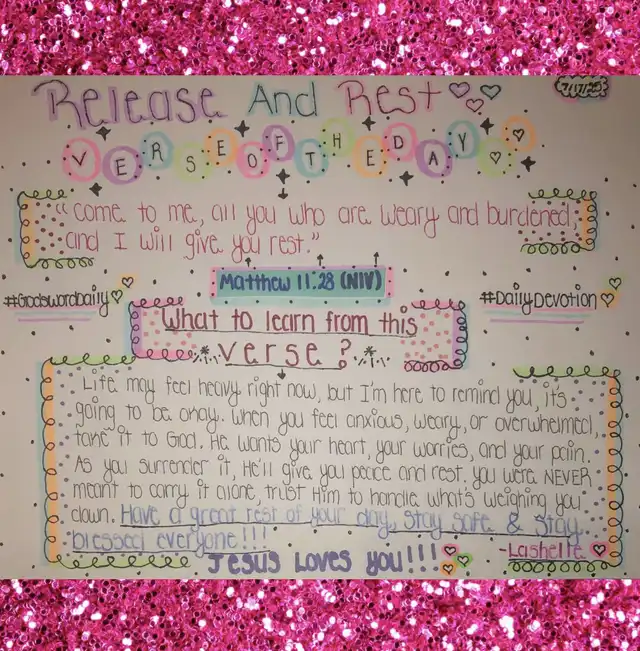 Release And Rest
VERSE OF THE DAY
"Come to me, all you who are weary and burdened,
and I will give you rest."
Matthew 11:28 (NIV)
#GodsWordDaily
#DailyDevotion
What to learn from this
verse?
Life may feel heavy right now, but I'm here to remind you, it's
going to be okay. When you feel anxious, weary, or overwhelmed,
take it to God. He wants your heart, your worries, and your pain.
As you surrender it, He'll give you peace and rest. You were NEVER
meant to carry it alone, trust Him to handle what's weighing you
down. Have a great rest of your day, stay safe & stay
blessed everyone!!!
-Lashelle
Jesus Loves you!!!